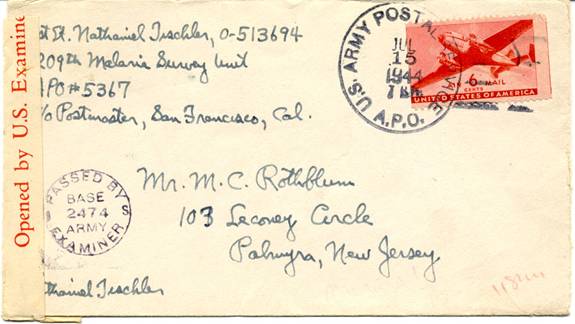 Opened by U.S. Examine
st Lt. Nathaniel Tischler, O-513694
209th Malaria Survey Unit
APO #5367
c/o Postmaster, San Francisco, Cal.
U.S. ARMY POSTAL SERVICE
JUL
15
1944
A.P.O.
6
CENTS
AIR MAIL
UNITED STATES OF AMERICA
PASSED BY
BASE
2474
ARMY
EXAMINER
Mr. M.C. Rothblum
103 Leconey Circle
Palmyra, New Jersey
Nathaniel Tischler